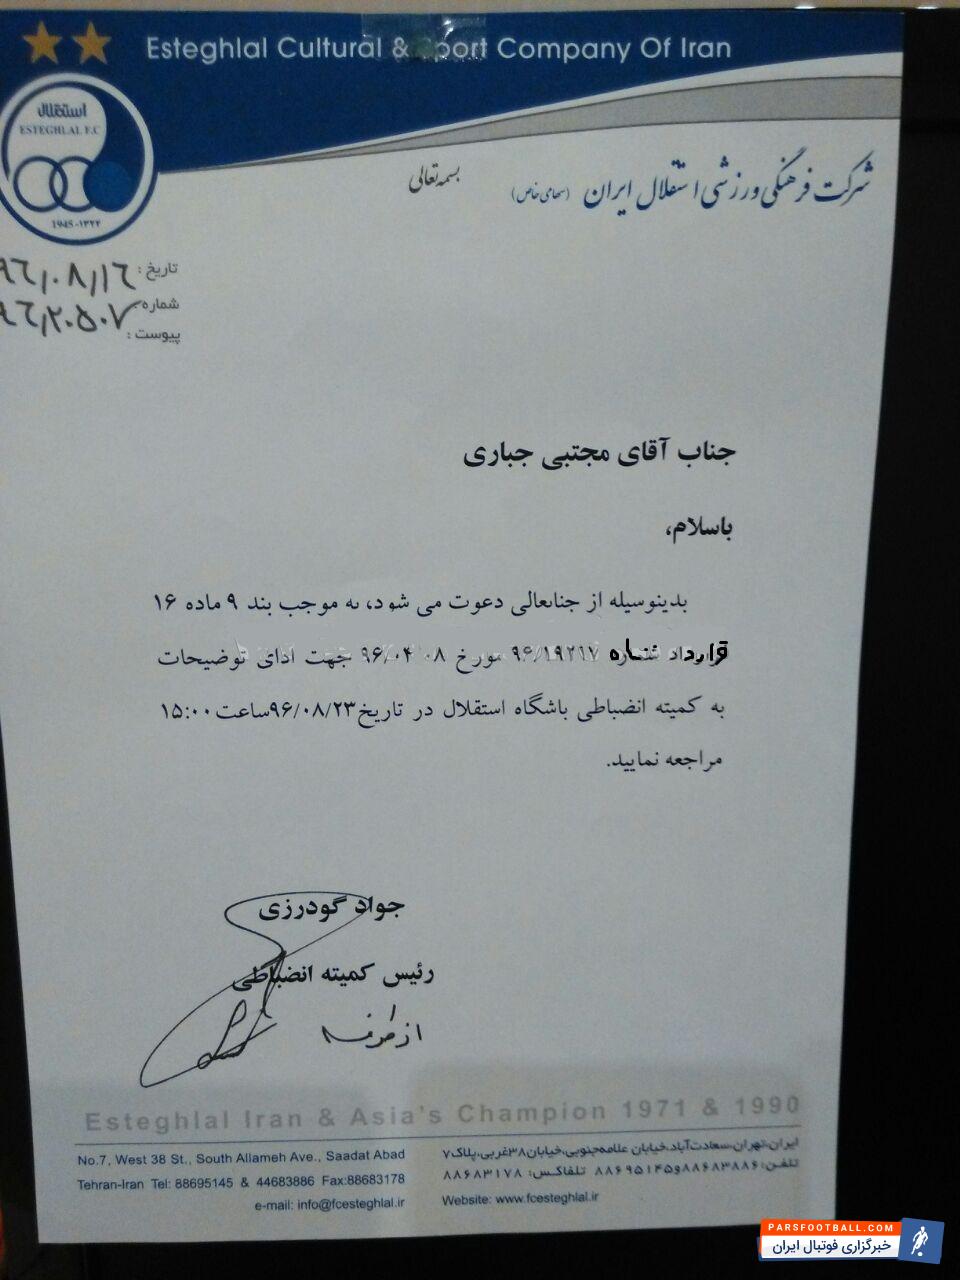 Esteghlal Cultural & Sport Company Of Iran
استقلال
ESTEGHLAL F.C
1945-۱۳۲۴
بسمه تعالی
شرکت فرهنگی ورزشی استقلال ایران (سهامی خاص)
تاریخ: ۹۶/۰۸/۱۶
شماره: ۹۶/۲۰۵۰۷
پیوست:
جناب آقای مجتبی جباری
باسلام،
بدینوسیله از جنابعالی دعوت می شود، به موجب بند ۹ ماده ۱۶
قرارداد شماره ۹۶/۱۹۲۱۷ مورخ ۹۶/۰۴/۰۸ جهت ادای توضیحات
به کمیته انضباطی باشگاه استقلال در تاریخ۹۶/۰۸/۲۳ساعت۱۵:۰۰
مراجعه نمایید.
جواد گودرزی
رئیس کمیته انضباطی
از طرف
Esteghlal Iran & Asia's Champion 1971 & 1990
ایران،تهران،سعادت‌آباد،خیابان علامه‌جنوبی،خیابان۳۸غربی،پلاک۷
تلفن:۸۸۶۸۳۸۸۶و۸۸۶۹۵۱۴۵ تلفاکس: ۸۸۶۸۳۱۷۸
Website: www.fcesteghlal.ir
No.7, West 38 St., South Allameh Ave., Saadat Abad
Tehran-Iran Tel: 88695145 & 44683886 Fax:88683178
e-mail: info@fcesteghlal.ir
PARSFOOTBALL.COM
خبرگزاری فوتبال ایران